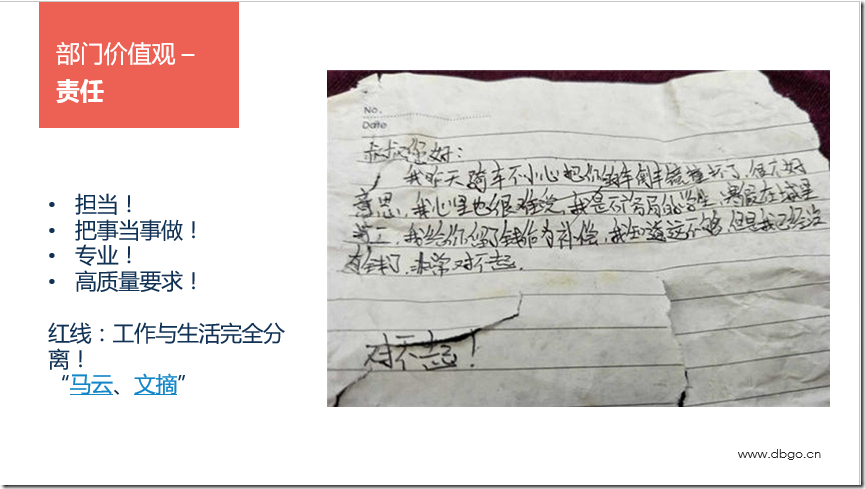 部门价值观 –
责任
• 担当！
• 把事当事做！
• 专业！
• 高质量要求！
红线：工作与生活完全分
离！
“马云、文摘”
No.
Date
叔叔您好：
我昨天骑车不小心把你的车倒车镜撞坏了，很不好
意思，我心里也很难受，我是的学生，寒假在城里
打工，我给你留了钱作为补偿，我知道远不够，但是我已经没
有钱了，非常对不起．
对不起！
www.dbgo.cn